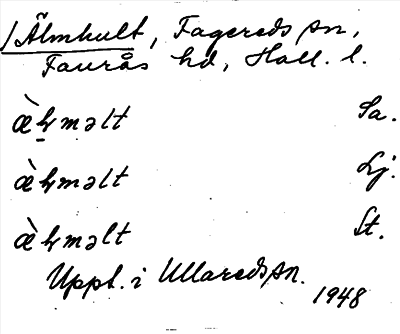 /Älmhult, Fagereds sn,
Faurås hd, Hall. l.
æ̀ɫ̱məlt Sa.
æ̀ɫməlt Lj.
æ̀ɫməlt St.
Uppt. i Ullareds sn.
1948